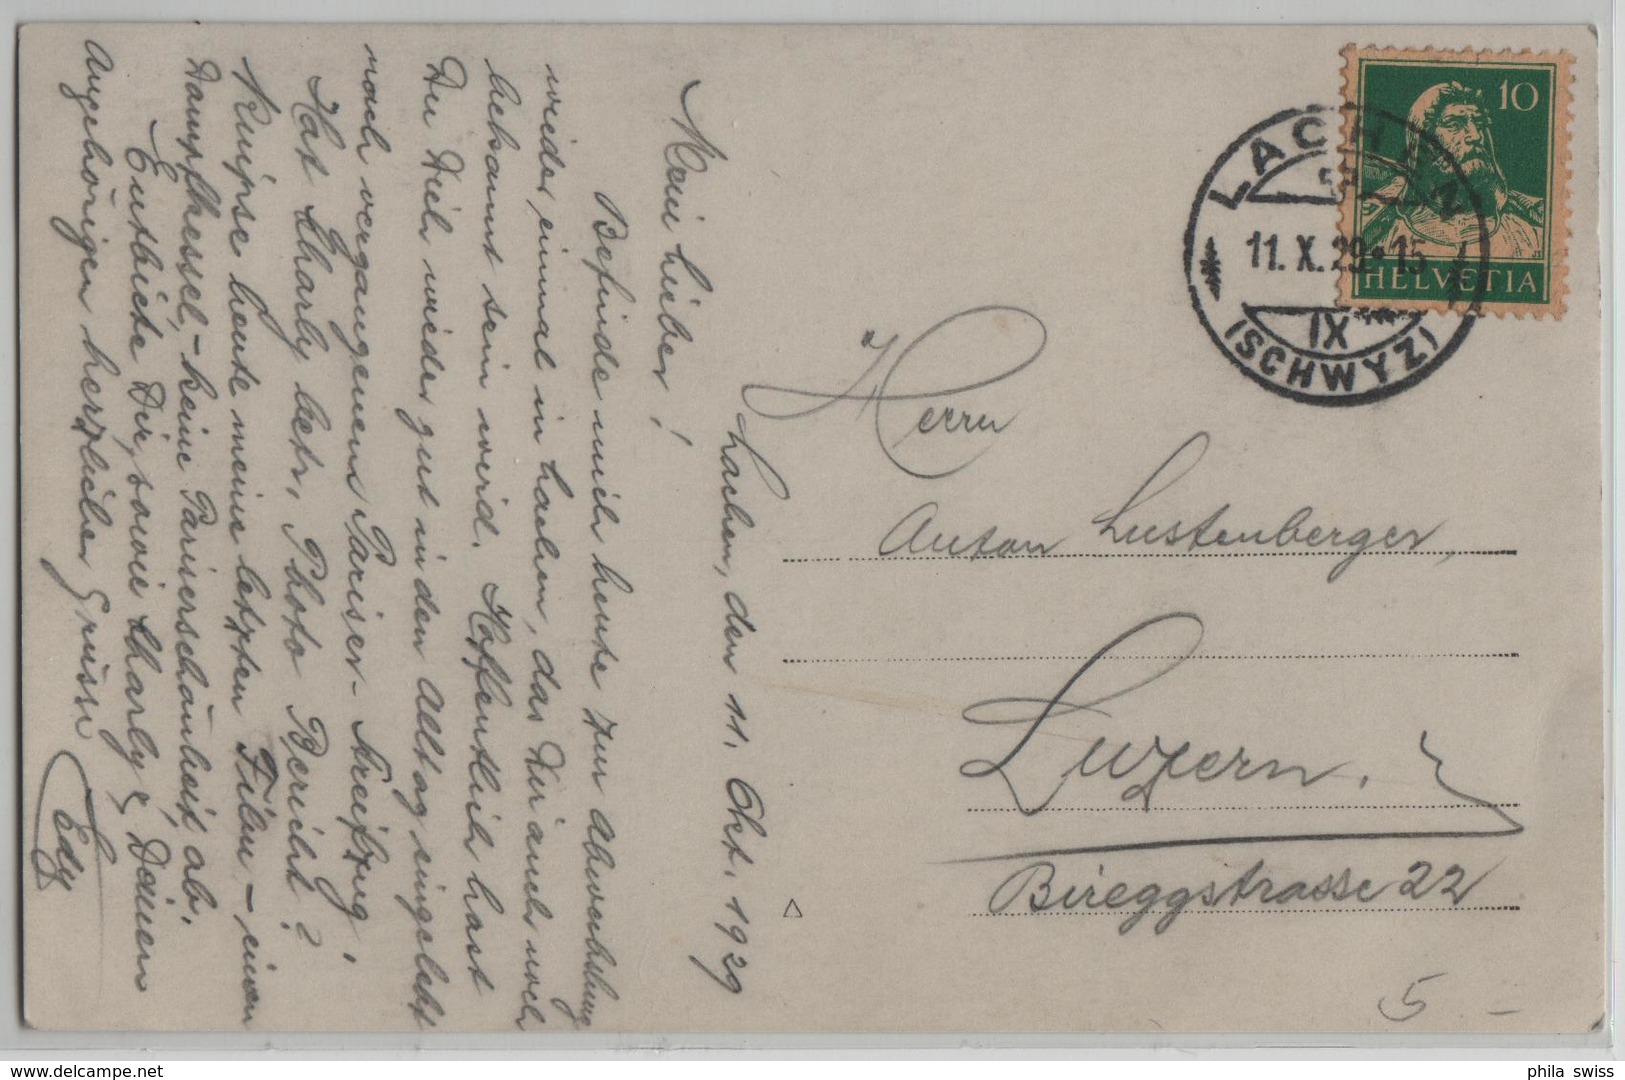 Lachen, den 11. Okt. 1929
Mein Lieber!
Befinde mich heute zur Abwechslung
wieder einmal in Lachen, das Dir auch noch
bekannt sein wird. Hoffentlich hast
Du Dich wieder gut in den Alltag eingelebt
nach vergangenem Pariser-Streifzug.
Hat Charly betr. Photo Bericht?
Knipse heute meine letzten Film - einen
Dampfkessel, - keine Pariserschönheit ab.
Entbiete Dir, sowie Charly & Deinen
Angehörigen herzlichen Gruss
Edy
HELVETIA
10
LACHEN
11. X. 29 - 15
IX
(SCHWYZ)
Herrn
Anton Lustenberger,
Luzern.
Bireggstrasse 22
5 -
phila swiss
www.delcampe.net